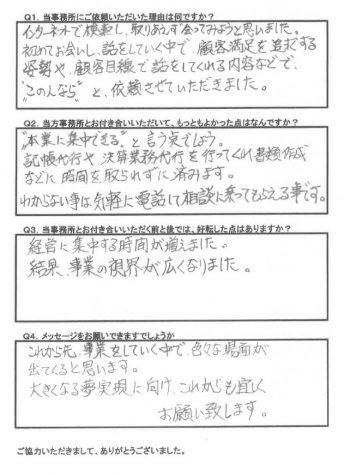 Q1. 当事務所にご依頼いただいた理由は何ですか?
インターネットで検索し、取りあえず会ってみようと思いました。
初めてお会いし、話をしていく中で、顧客満足を追求する
姿勢や、顧客目線で話をしてくれる内容などで、
"この人なら"と、依頼させていただきました。
Q2. 当方事務所とお付き合いいただいて、もっともよかった点はなんですか?
"本業に集中できる"と言う点でしょう。
記帳代行や、決算業務代行を行ってくれ書類作成
などに時間を取られずに済みます。
わからない事は気軽に電話して相談に乗ってもらえる事です。
Q3. 当事務所とお付き合いいただく前と後では、好転した点はありますか?
経営に集中する時間が増えました。
結果、事業の視界が広くなりました。
Q4. メッセージをお願いできますでしょうか
これから先、事業をしていく中で、色々な場面が
出てくると思います。
大きくなる夢実現に向け、これからも宜しく
お願い致します。
ご協力いただきまして、ありがとうございました。